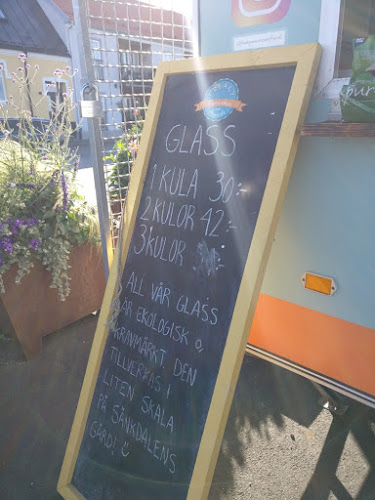 GLASS
1 KULA 30:-
2 KULOR 42:-
3 KULOR
ALL VÅR GLASS
ÄR EKOLOGISK o,
KRAVMÄRKT. DEN
TILLVERKAS I
LITEN SKALA
PÅ SÄNKDALENS
GÅRD!